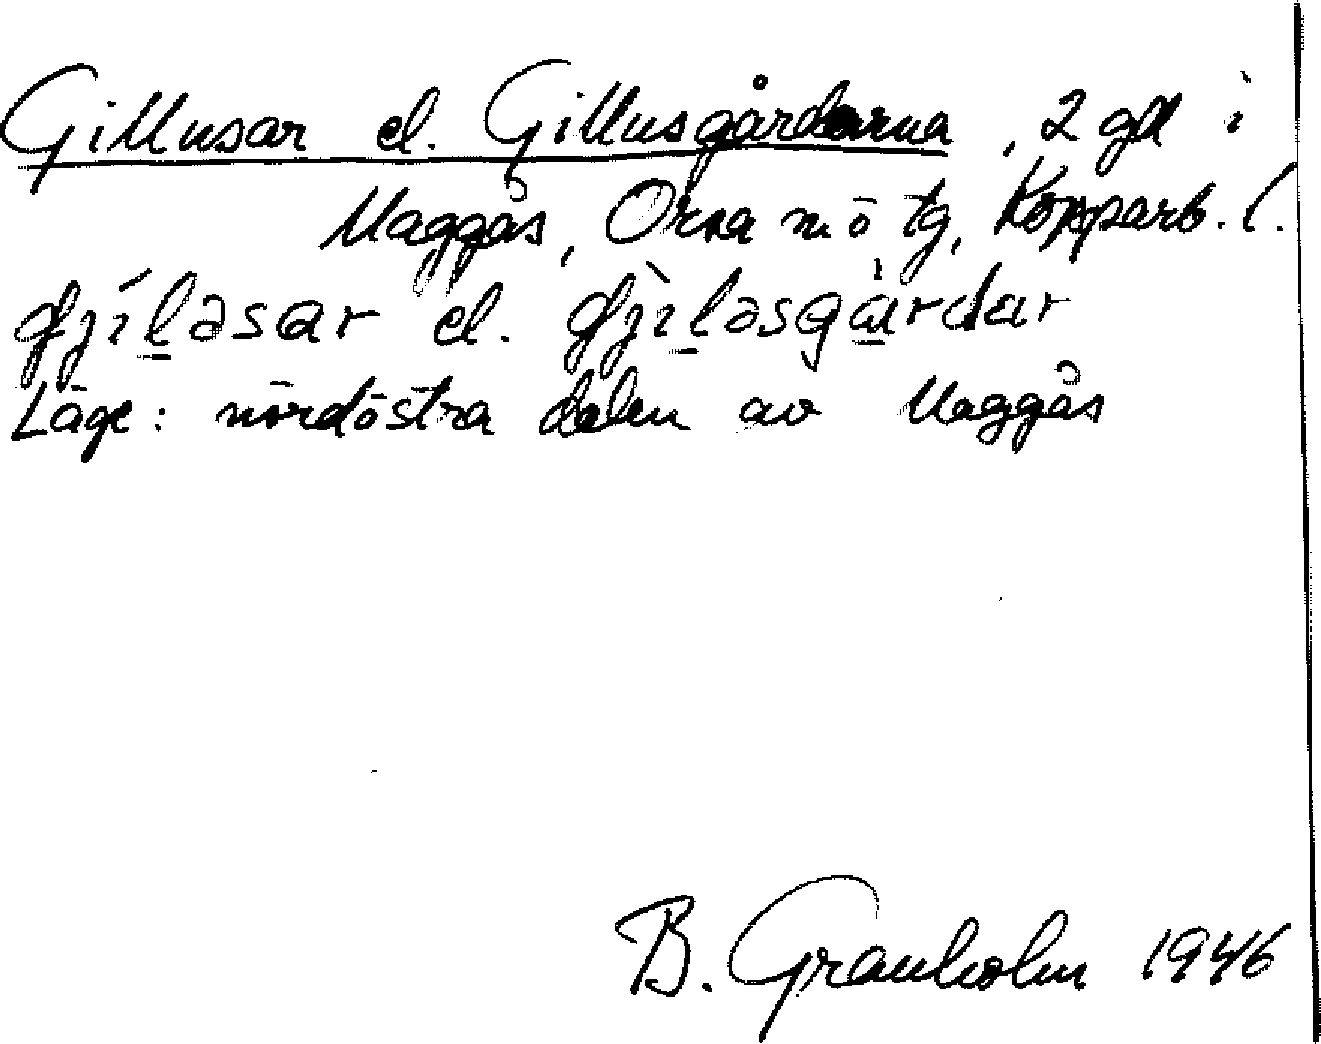 Gillusar el. Gillusgårdarna, 2 gd i
Maggås, Orsa sn ö tg, Kopparb. l.
gjíləsar el. gjìləsgàrdar
Läge: nordöstra delen av Maggås
B. Granholm 1946